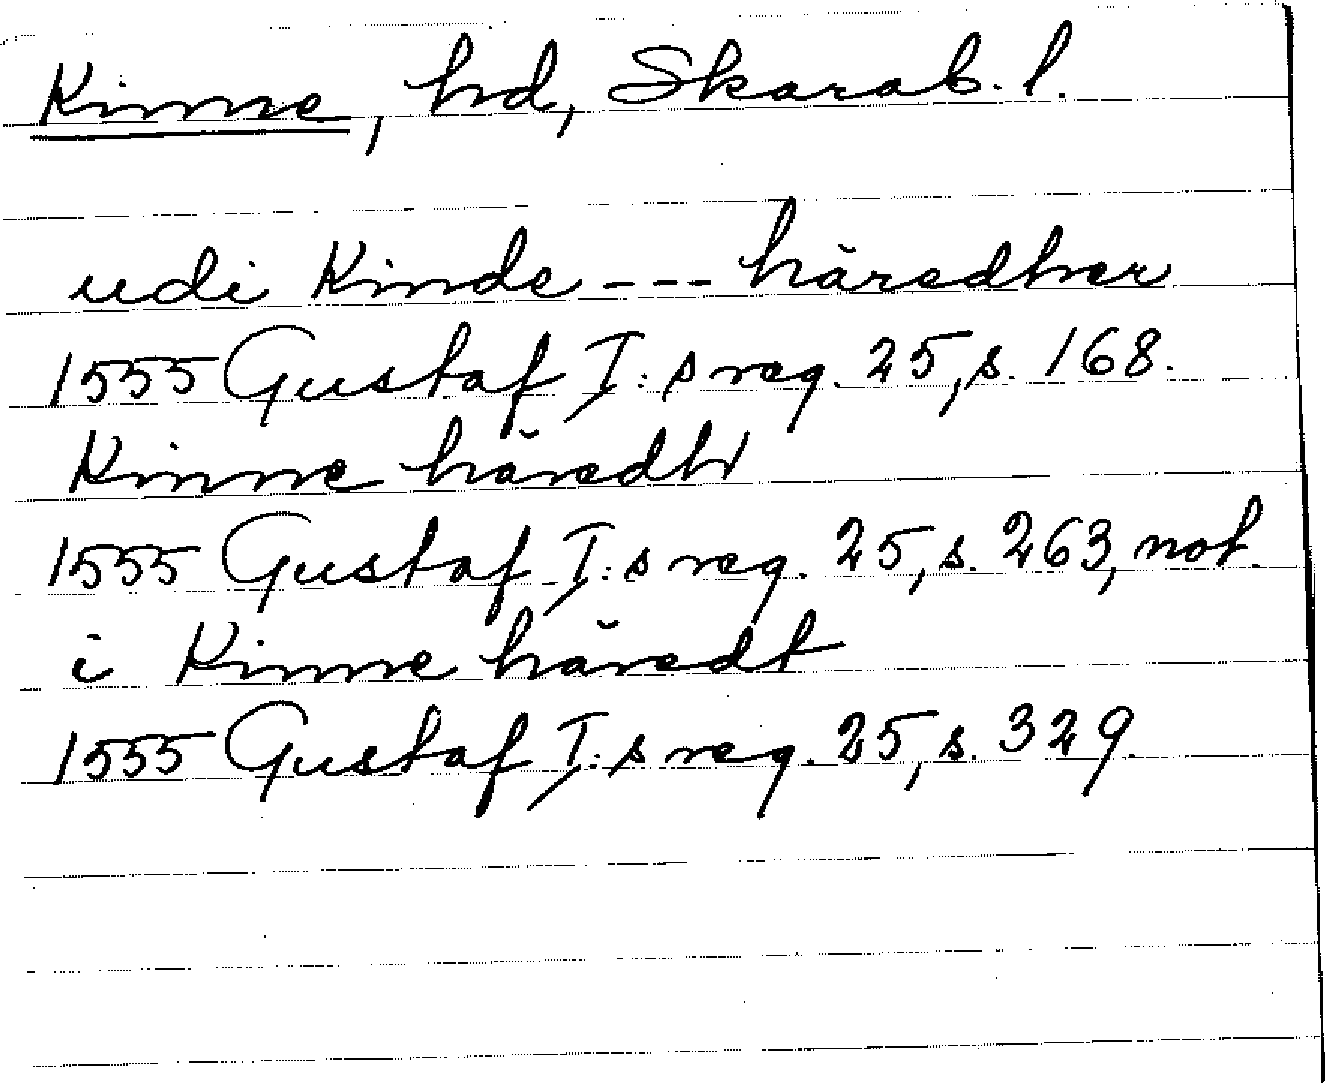 Kinne, hd, Skarab. l.
udi Kinde --- häredher
1555 Gustaf I:s reg. 25, s. 168.
Kinne häredh
1555 Gustaf I:s reg. 25, s. 263, not.
i Kinne häredt
1555 Gustaf I:s reg. 25, s. 329.